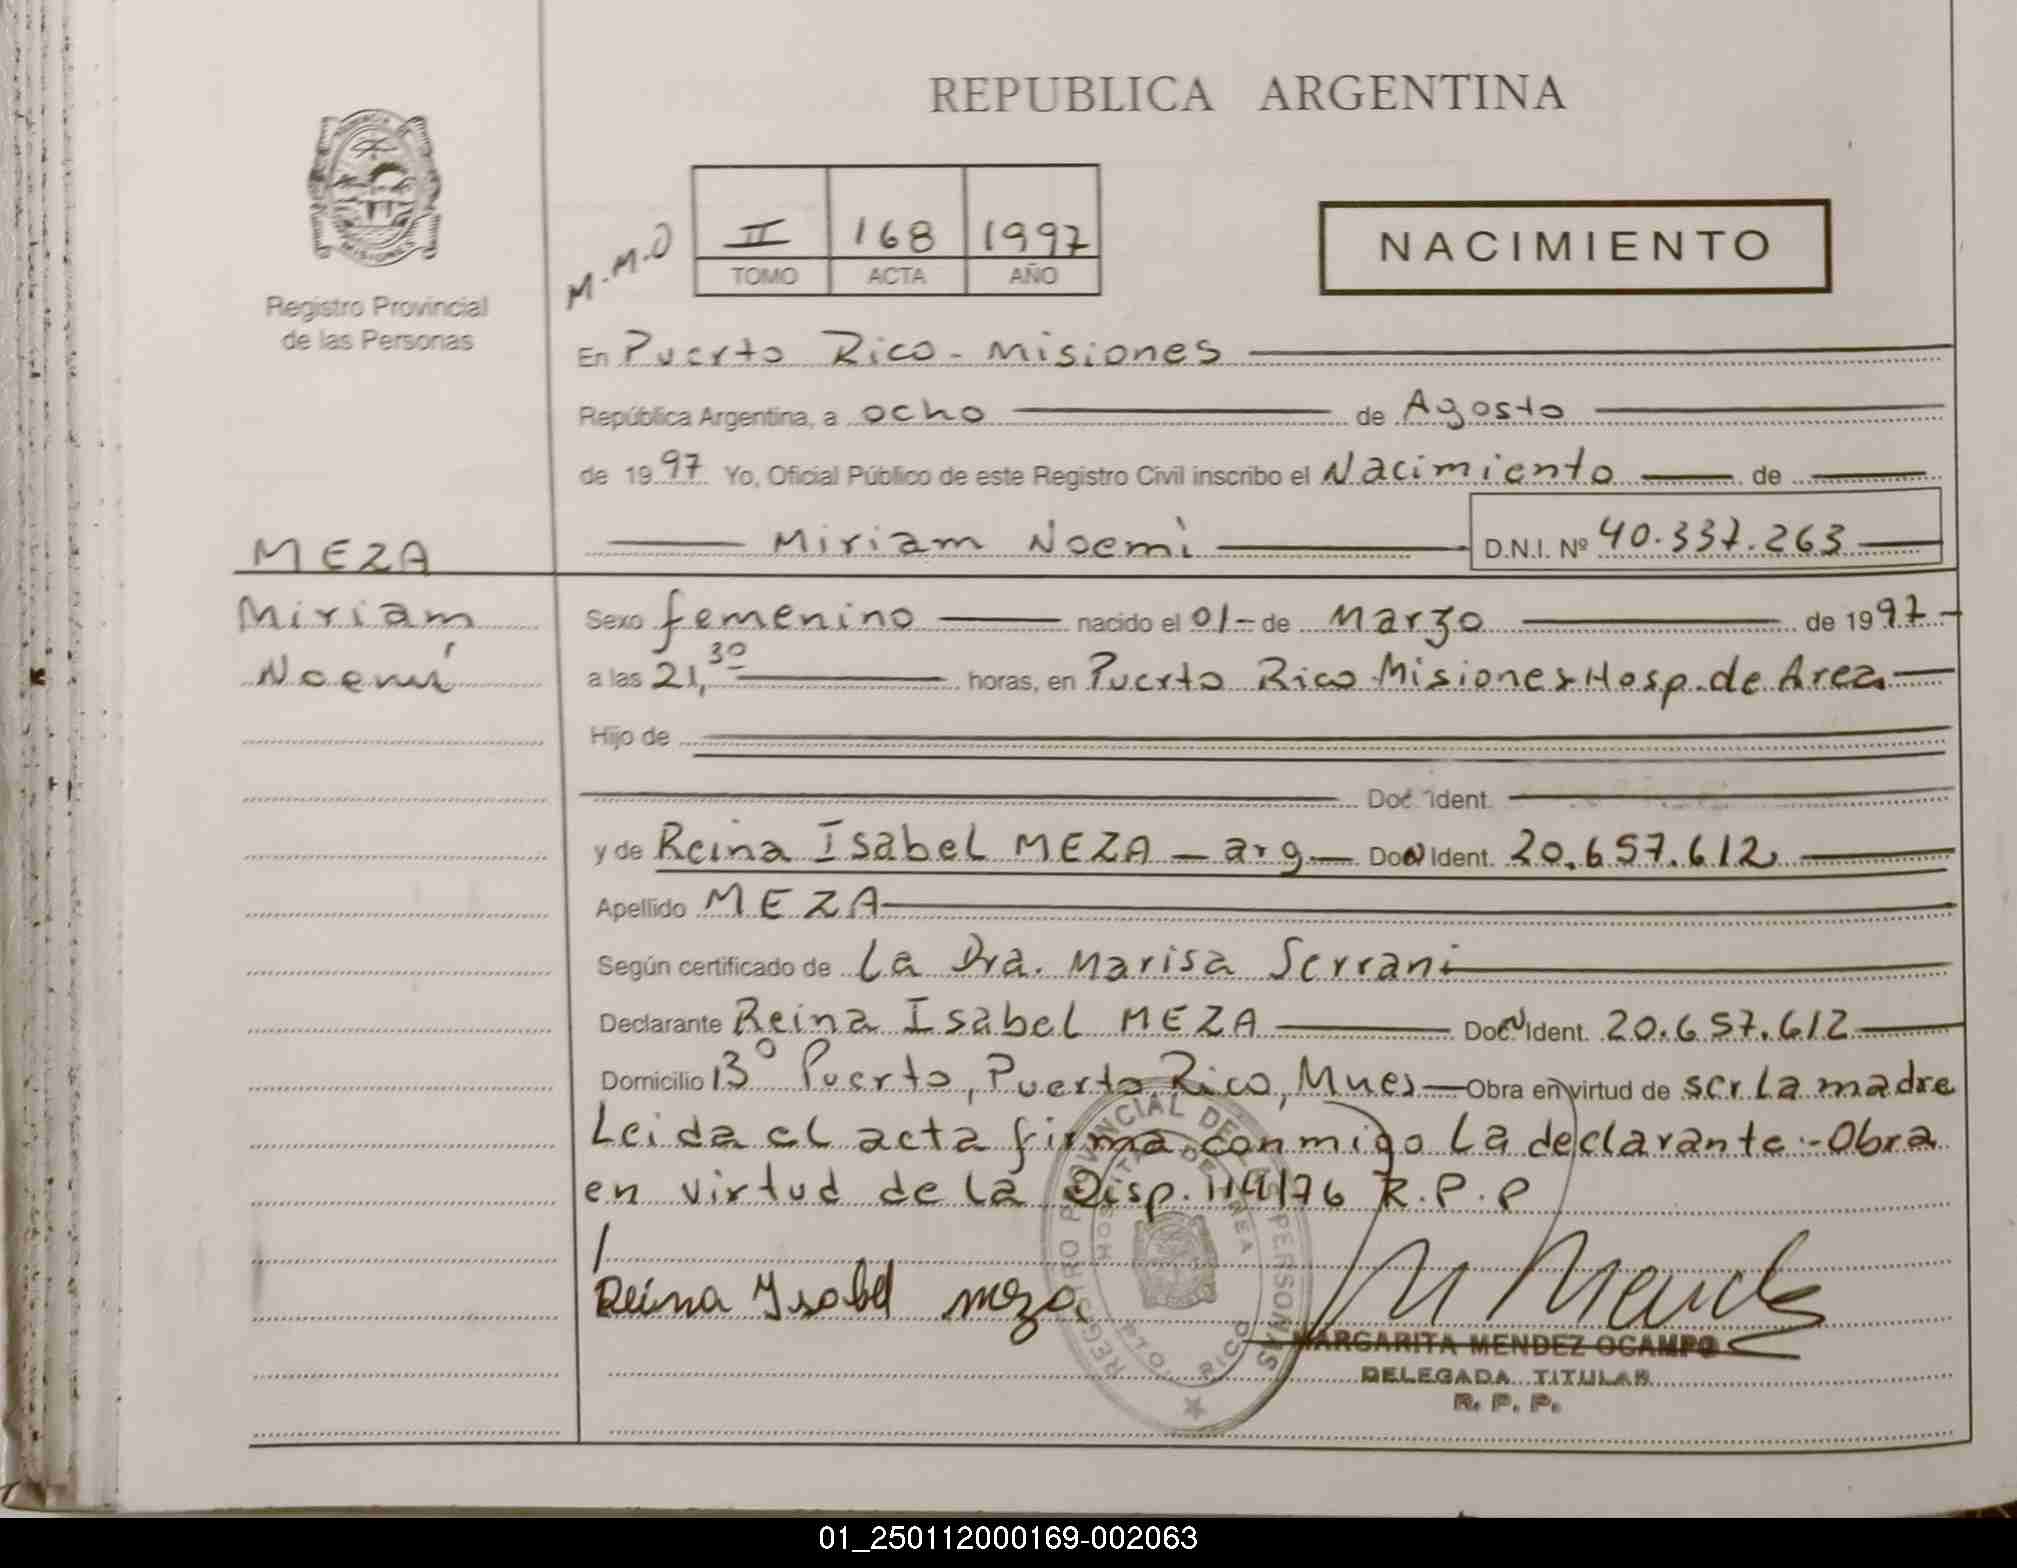 REPUBLICA ARGENTINA
PROVINCIA DE
MISIONES
Registro Provincial
de las Personas
M.M.O
II 168 1997
TOMO ACTA AÑO
NACIMIENTO
En Puerto Rico - Misiones
República Argentina, a ocho de Agosto
de 1997 Yo, Oficial Público de este Registro Civil inscribo el Nacimiento de
Miriam Noemì D.N.I. Nº 40.337.263
MEZA
Miriam
Noemí
Sexo femenino nacido el 01- de Marzo de 1997-
a las 21,30 horas, en Puerto Rico Misiones Hosp. de Area
Hijo de
Doc. Ident.
y de Reina Isabel MEZA - arg. Doc. Ident. 20.657.612
Apellido MEZA
Según certificado de La Dra. Marisa Serrani
Declarante Reina Isabel MEZA Doc. Ident. 20.657.612
Domicilio 13° Puerto, Puerto Rico, Mnes Obra en virtud de ser la madre
Leida el acta firma conmigo la declarante.- Obra
en virtud de la Disp. 114/76 R.P.P
Reina Ysabel meza
M Mendez
REGISTRO PROVINCIAL DE LAS PERSONAS
HOSPITAL DE AREA
PTO. RICO
MARGARITA MENDEZ OCAMPO
DELEGADA TITULAR
R. P. P.
01_250112000169-002063